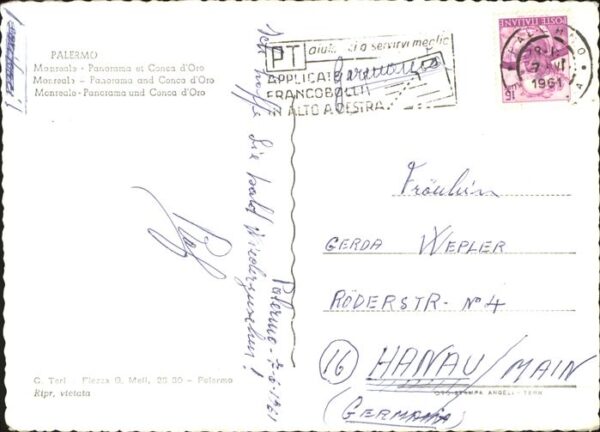 PALERMO
Monreale - Panorama et Conca d'Oro
Monreale - Panorama and Conca d'Oro
Monreale - Panorama und Conca d'Oro
Ich hoffe Sie bald Wiederzusehen!
Palermo - 7-6-1961
G. Teri - Piazza G. Meli, 28 30 - Palermo
Ripr. vietata
PT aiutateci a servirvi meglio
APPLICATE
FRANCOBOLLI
IN ALTO A DESTRA
POSTE ITALIANE
15
PALERMO
1961
Fräulein
GERDA WEPLER
RÖDERSTR - No 4
16 HANAU/MAIN
(GERMANIA)